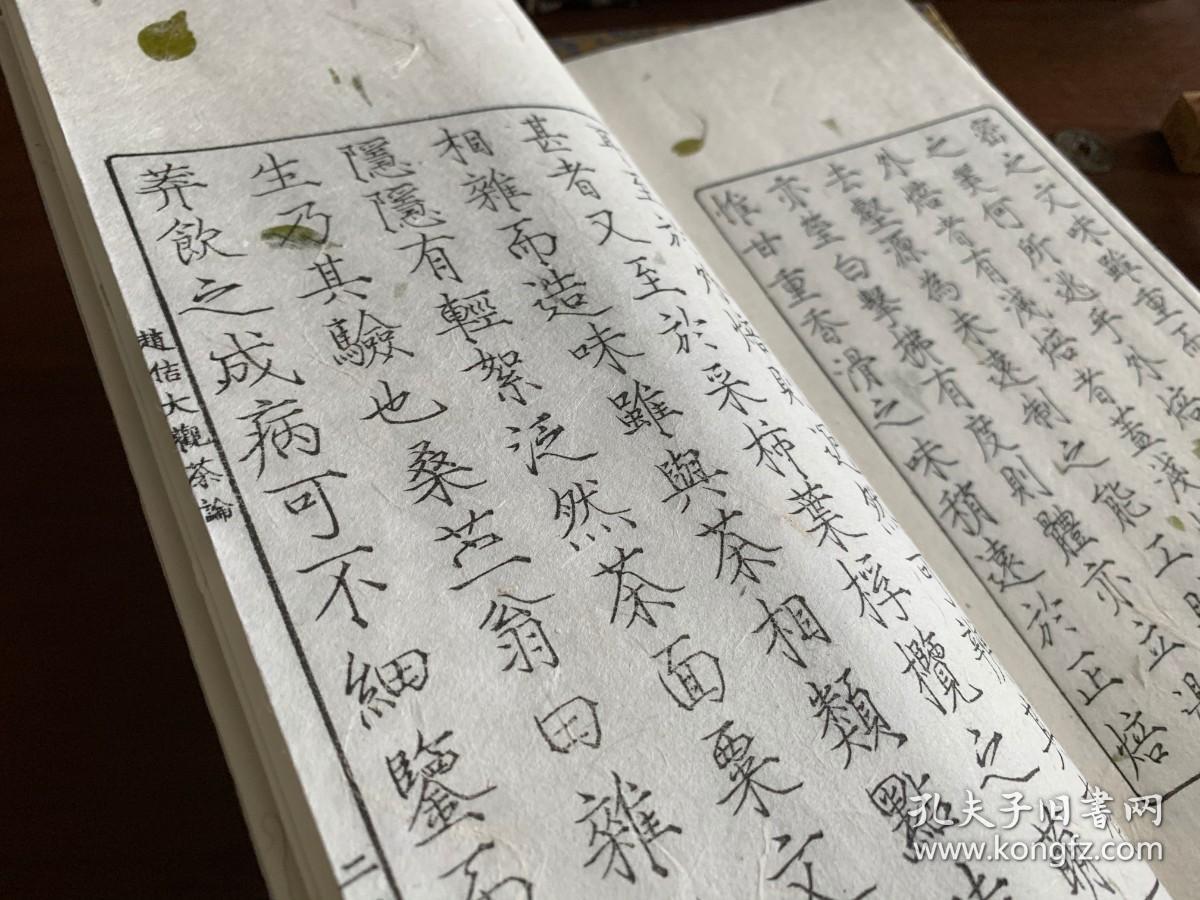 密之文味雖重而
之美何所逃乎外焙
外焙者有淺焙者蓋淺
去壑源為未遠制之能工則
亦瑩白擊拂有度則體亦立湯
惟甘重香滑之味稍遠於正焙
耳至於外焙則迥然可辨其有
甚者又至於采柿葉桴欖之萌
相雜而造味雖與茶相類點
隱隱有輕絮泛然茶面粟文
生乃其驗也桑苎翁曰雜
莽飲之成病可不細鑒而
趙佶大觀茶論
二
孔夫子旧書网
www.kongfz.com